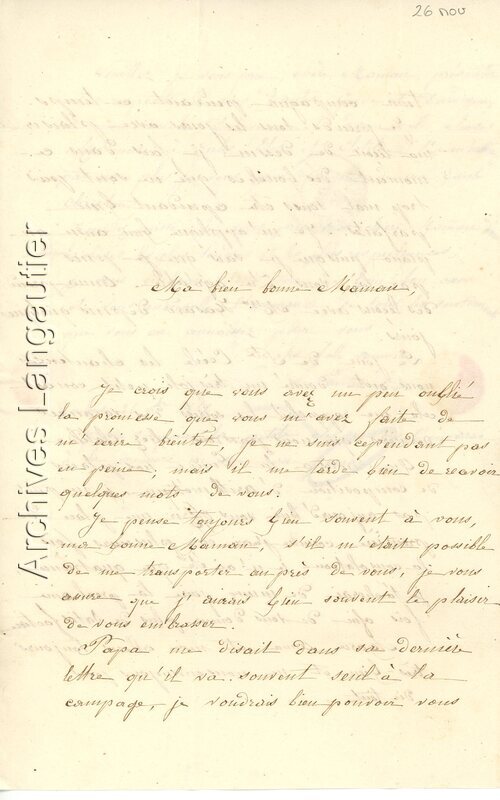 26 nov
Ma bien bonne Maman,
Je crois que vous avez un peu oublié
la promesse que vous m'avez faite de
m'écrire bientôt, je ne suis cependant pas
en peine; mais il me tarde bien de recevoir
quelques mots de vous.
Je pense toujours bien souvent à vous,
ma bonne Maman, s'il m'était possible
de me transporter auprès de vous, je vous
assure que j'aurais bien souvent le plaisir
de vous embrasser.
Papa me disait dans sa dernière
lettre qu'il va souvent seul à la
campage, je voudrais bien pouvoir vous
Archives Langautier